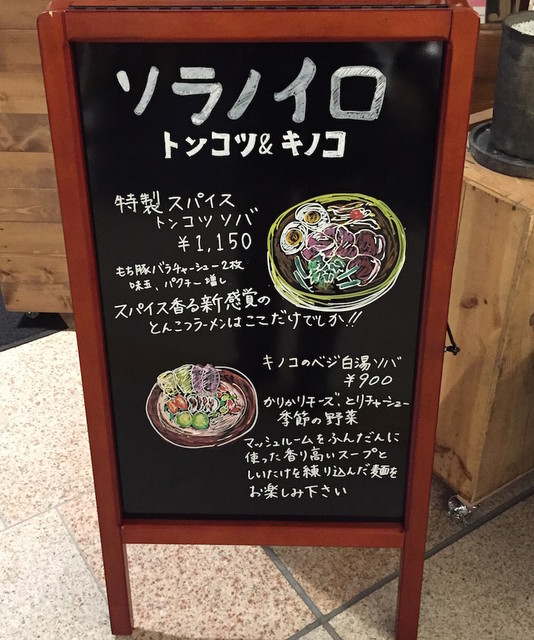 ソラノイロ
トンコツ&キノコ
特製スパイス
トンコツソバ
¥1,150
もち豚バラチャーシュー2枚
味玉、パクチー増し
スパイス香る新感覚の
とんこつラーメンはここだけでしか!!
キノコのベジ白湯ソバ
¥900
かりかりチーズ、とりチャーシュー
季節の野菜
マッシュルームをふんだんに
使った香り高いスープと
しいたけを練り込んだ麺を
お楽しみ下さい